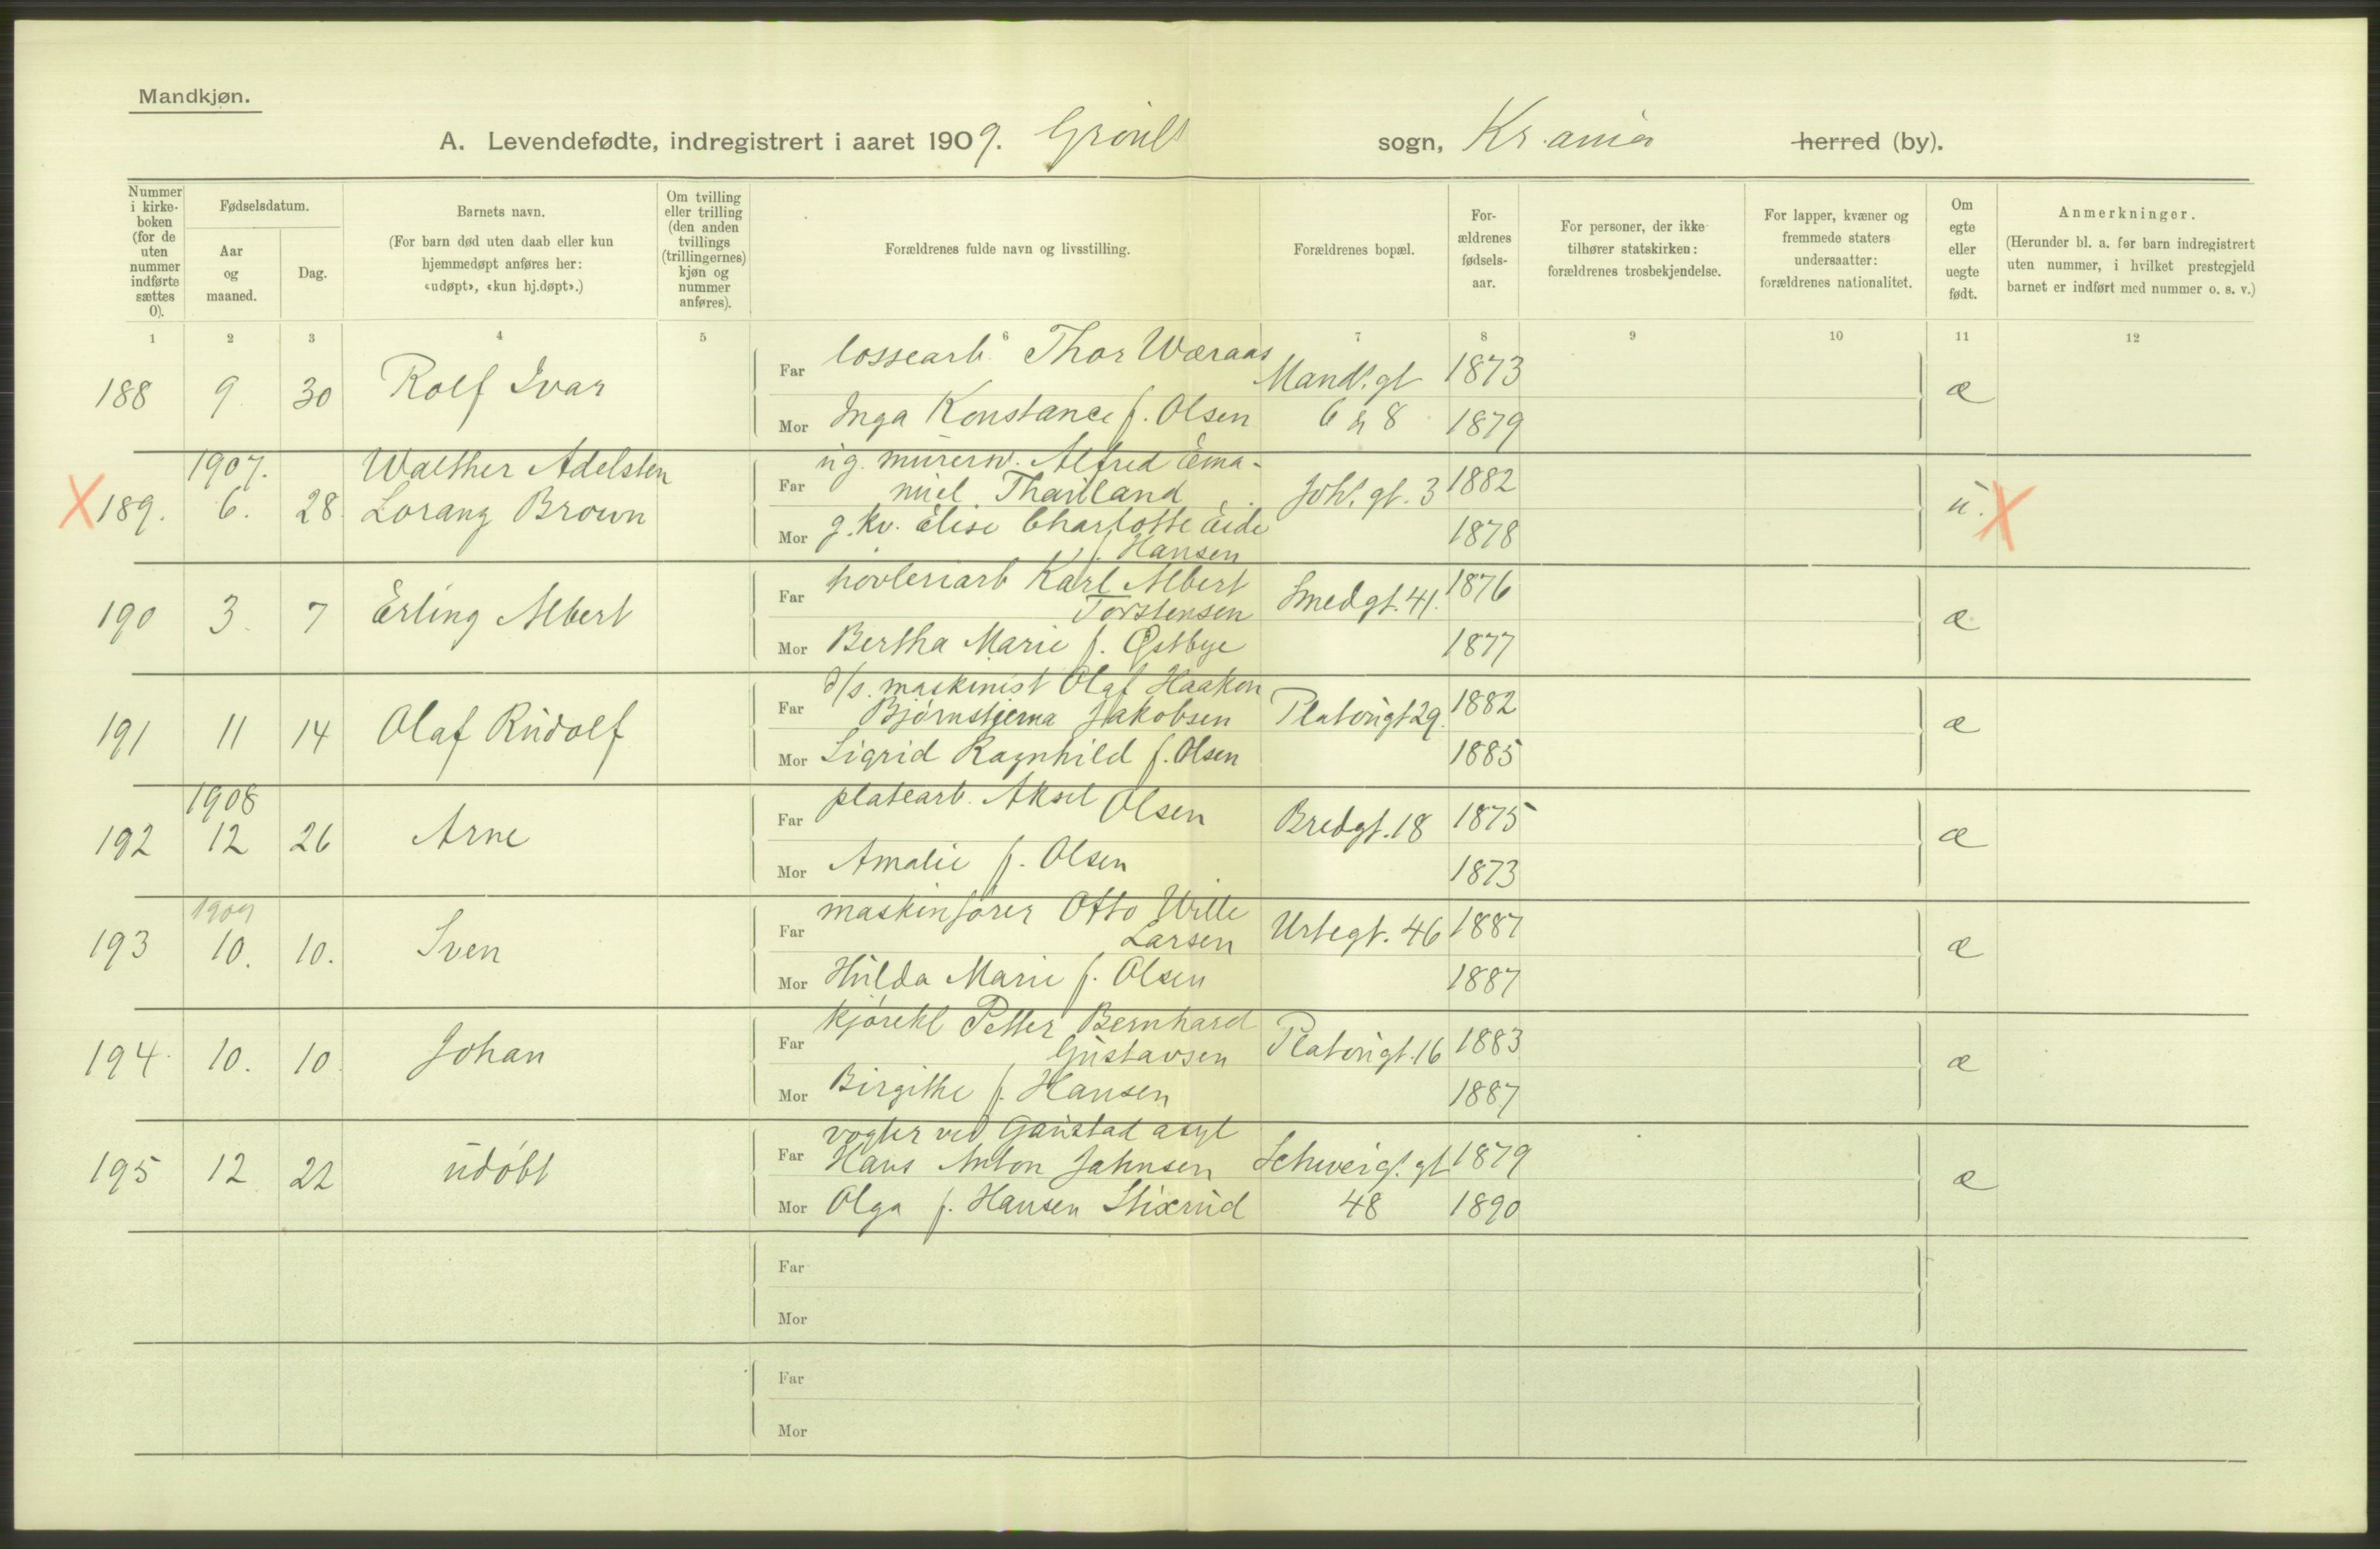 Mandkjøn.
A. Levendefødte, indregistrert i aaret 1909. Grønl. sogn, Kr.ania herred (by).
Nummer i kirke-boken (for de uten nummer indførte sættes 0).
Fødselsdatum.
Aar og maaned.
Dag.
Barnets navn.
(For barn død uten daab eller kun hjemmedøpt anføres her: «udøpt», «kun hj.døpt».)
Om tvilling eller trilling (den anden tvillings (trillingernes) kjøn og nummer anføres).
Forældrenes fulde navn og livsstilling.
Forældrenes bopæl.
For-ældrenes fødsels-aar.
For personer, der ikke tilhører statskirken: forældrenes trosbekjendelse.
For lapper, kvæner og fremmede staters undersaatter: forældrenes nationalitet.
Om egte eller uegte født.
Anmerkninger.
(Herunder bl. a. for barn indregistrert uten nummer, i hvilket prestegjeld barnet er indført med nummer o. s. v.)
1 2 3 4 5 6 7 8 9 10 11 12
188 9. 30 Rolf Ivar
Far lossearb. Thor Wæraas Mand.gt 1873 æ
Mor Inga Konstance f. Olsen 6 & 8 1879
X 189. 1907. 6. 28. Walther Adelsten
Lorang Brown
Far ug. murersv. Alfred Ema-
nuel Thaulland Joh. gt. 3 1882 u. X
Mor g. kv. Elise Charlotte Eide
f. Hansen 1878
190 3. 7 Erling Albert
Far høvleriarb Karl Albert
Torstensen Smedgt. 41. 1876 æ
Mor Bertha Marie f. Østbye 1877
191 11 14 Olaf Rudolf
Far d/s. maskinist Olaf Haakon
Bjørnstjerna Jakobsen Platougt 29. 1882 æ
Mor Sigrid Ragnhild f. Olsen 1885
192 1908 12 26 Arne
Far platearb. Aksel Olsen Bredgt. 18 1875 æ
Mor Amalie f. Olsen 1873
193 1909 10. 10. Sven
Far maskinfører Otto Wille
Larsen Urtegt. 46 1887 æ
Mor Hulda Marie f. Olsen 1887
194. 10. 10. Johan
Far kjørekl Petter Bernhard
Gustavsen Platougt. 16 1883 æ
Mor Birgithe f. Hansen 1887
195 12 22 udøbt
Far vogter ved Gaustad asyl
Hans Anton Jahnsen Schweig. gt 1879 æ
Mor Olga f. Hansen Stixrud 48 1890
Far
Mor
Far
Mor